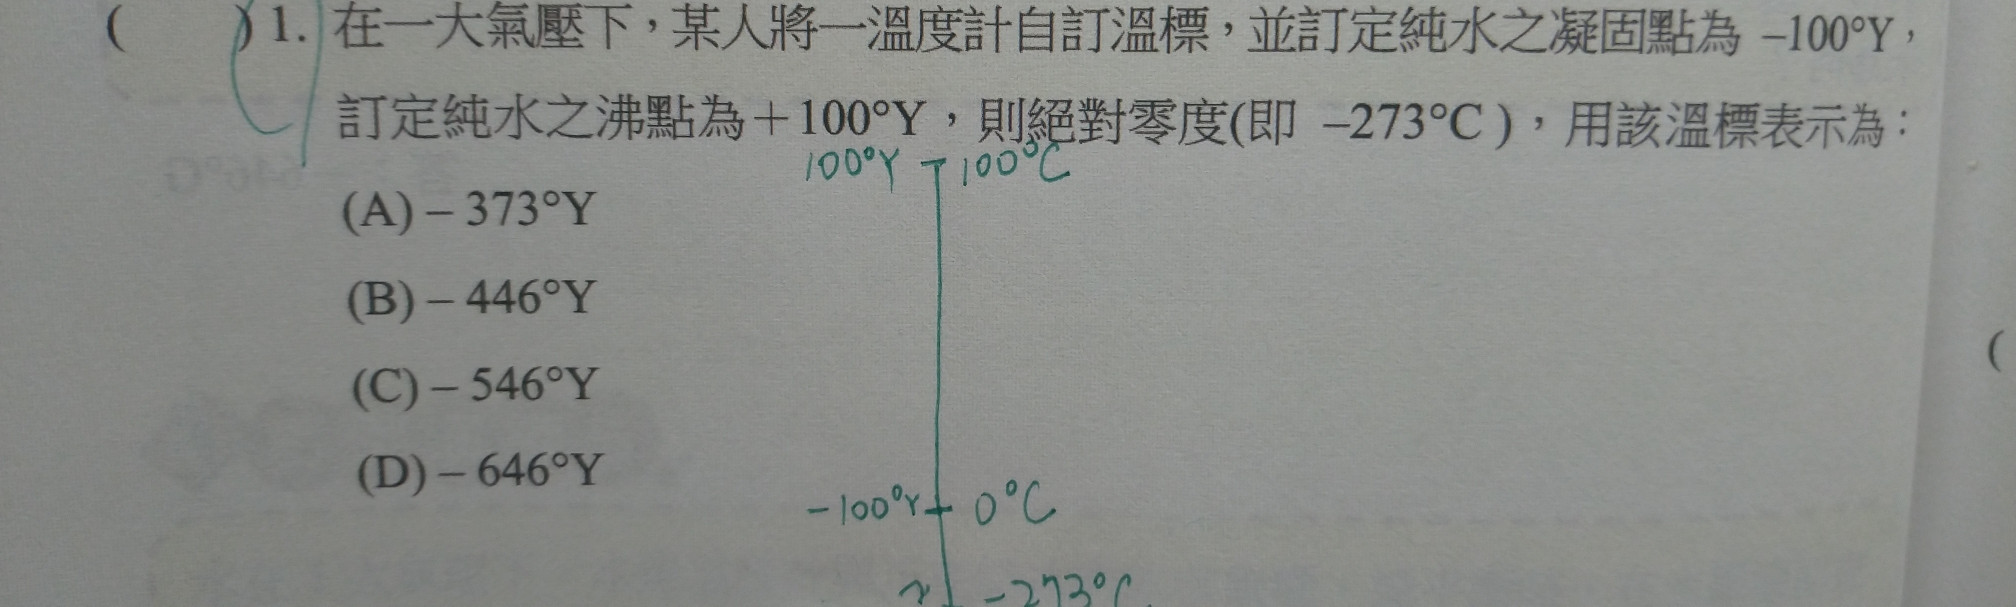 (　　)1. 在一大氣壓下，某人將一溫度計自訂溫標，並訂定純水之凝固點為 –100°Y，
訂定純水之沸點為＋100°Y，則絕對零度(即 –273°C )，用該溫標表示為：
100°Y 100°C
(A) – 373°Y
(B) – 446°Y
(C) – 546°Y
(D) – 646°Y
-100°Y 0°C
x -273°C
(